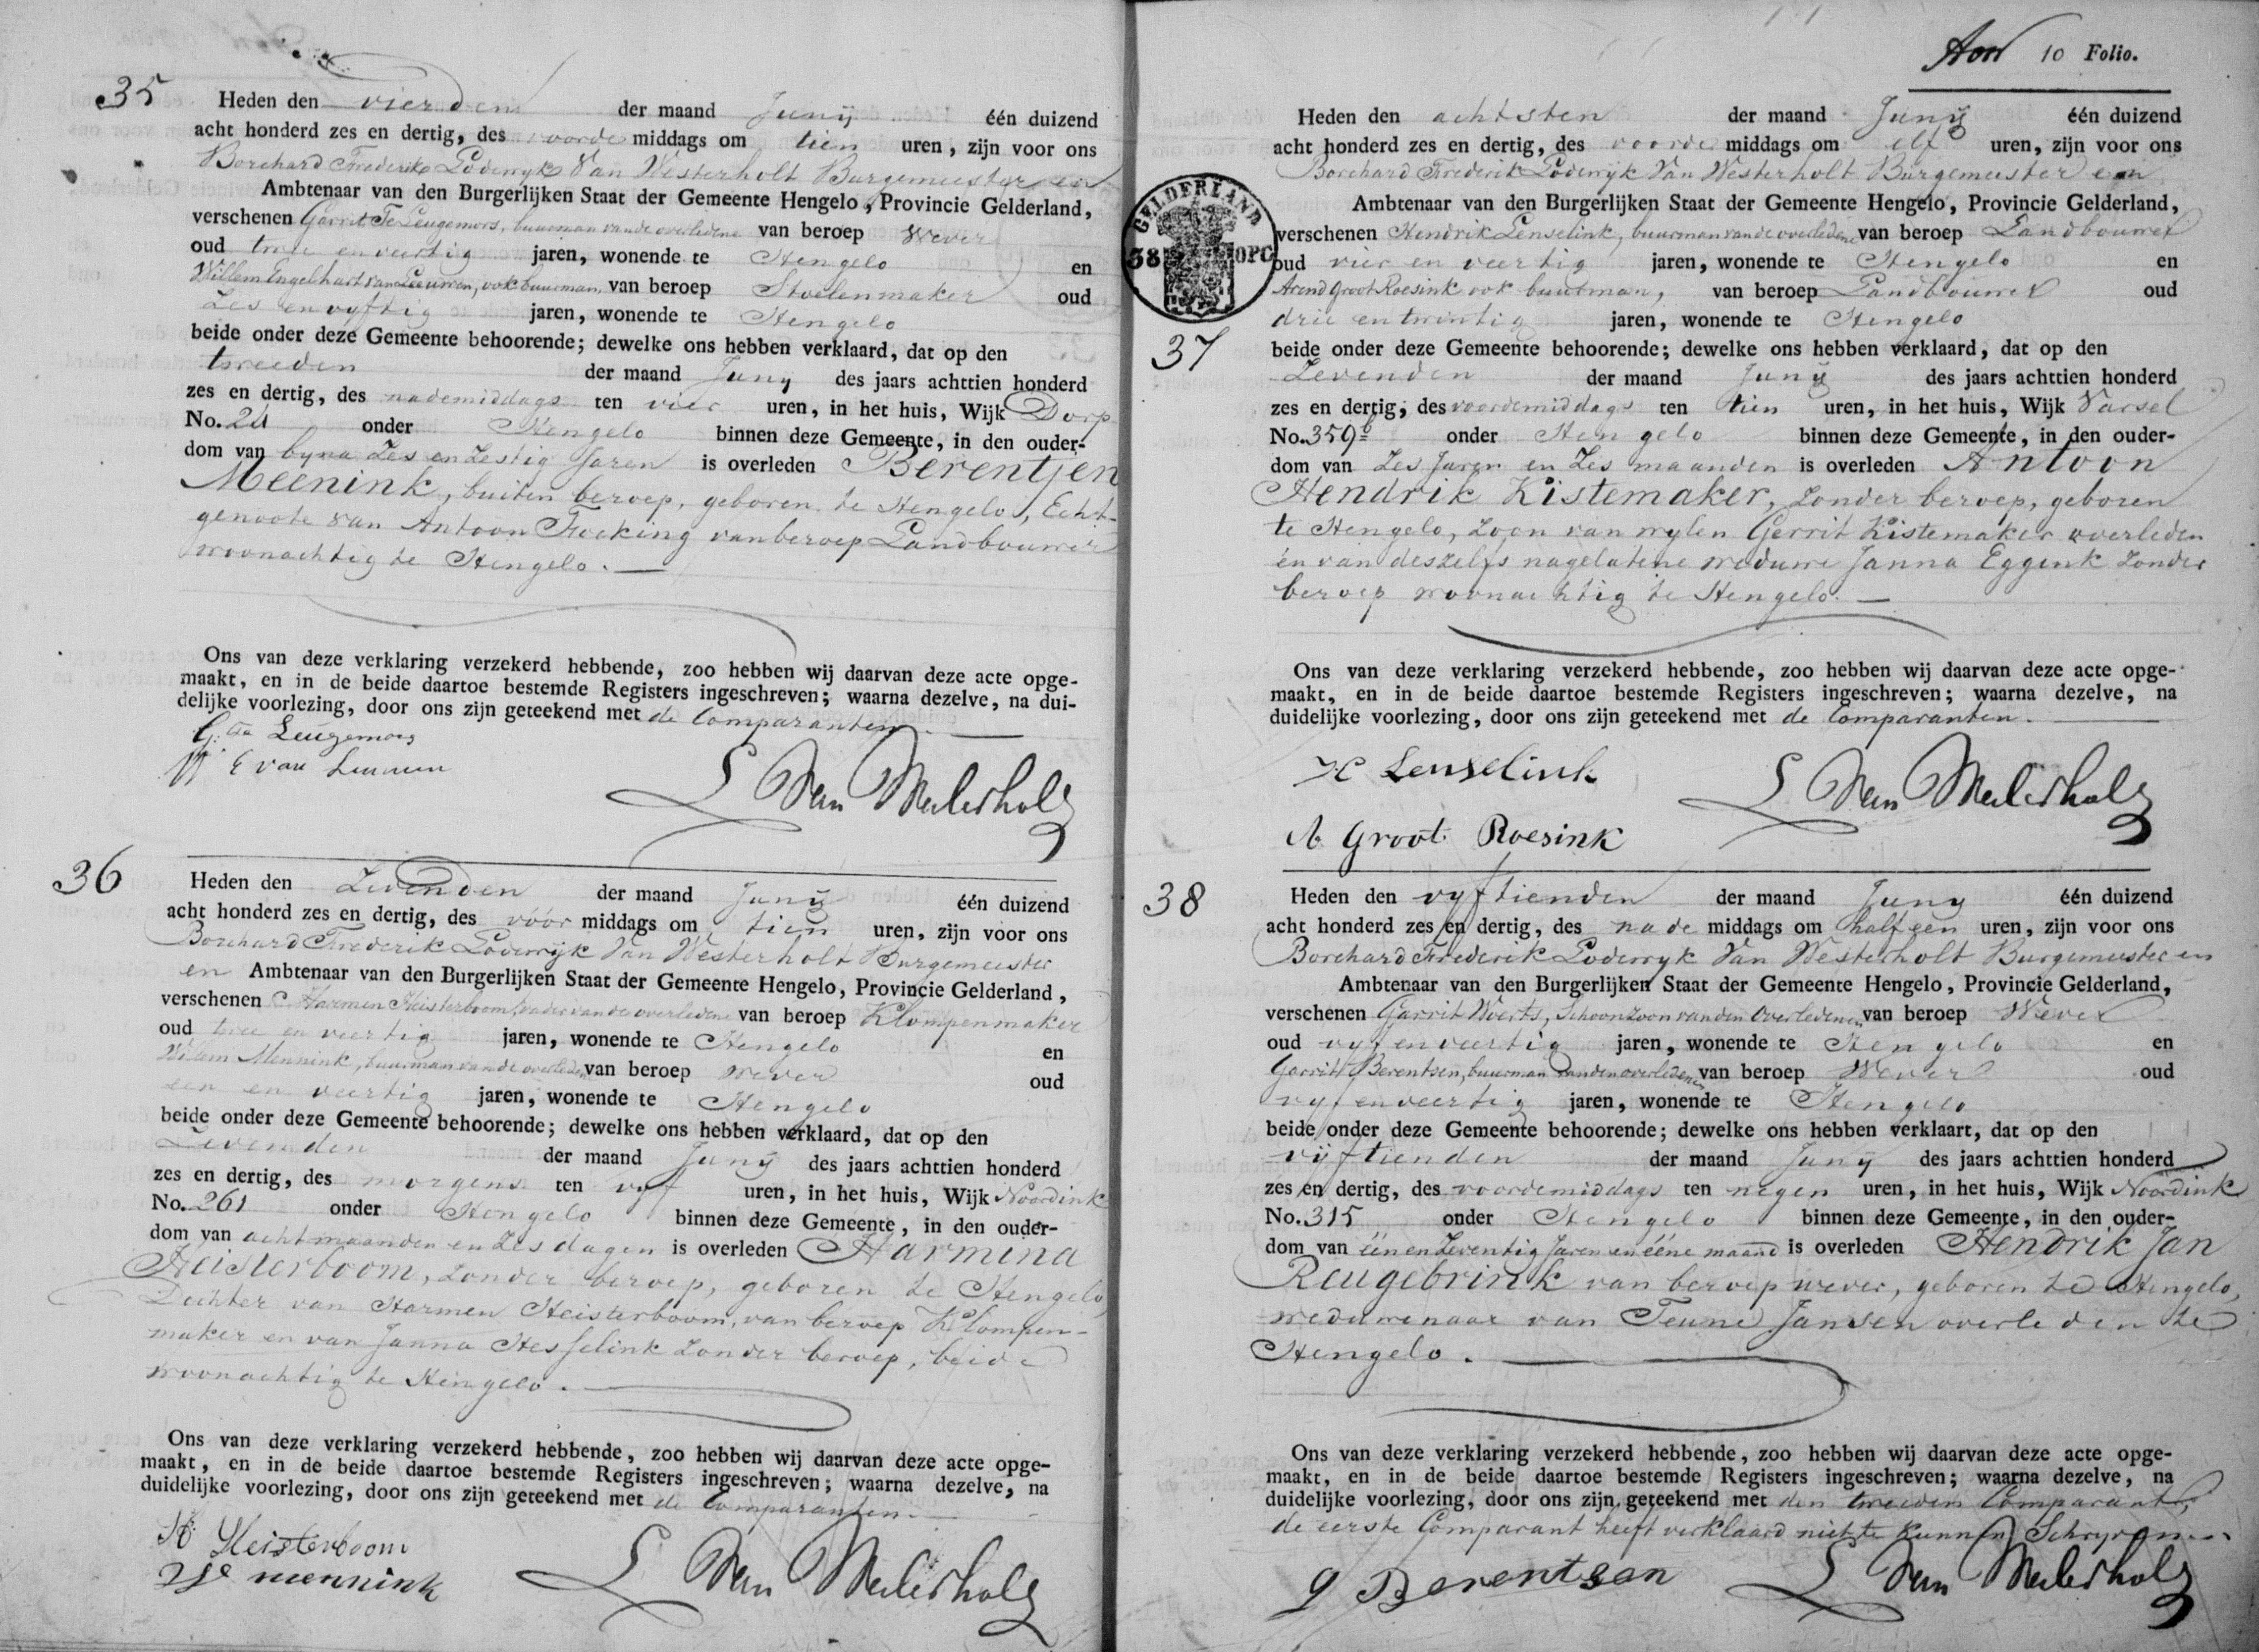 35
Heden den vierden der maand Junij één duizend
acht honderd zes en dertig, des voorde middags om tien uren, zijn voor ons
Borchard Frederik Lodewyk Van Westerholt Burgemeester en
Ambtenaar van den Burgerlijken Staat der Gemeente Hengelo, Provincie Gelderland,
verschenen Garrit Te Leugemors, buurman van de overledene van beroep Wever
oud twee en veertig jaren, wonende te Hengelo en
Willem Engelhart van Leeuwen, ook buurman, van beroep Stoelenmaker oud
Zes en vyftig jaren, wonende te Hengelo
beide onder deze Gemeente behoorende; dewelke ons hebben verklaard, dat op den
tweeden der maand Junij des jaars achttien honderd
zes en dertig, des nademiddags ten vier uren, in het huis, Wijk Dorp
No. 24 onder Hengelo binnen deze Gemeente, in den ouder-
dom van byna Zes en Zestig Jaren is overleden Berentjen
Meenink, buiten beroep, geboren te Hengelo, Echt-
genoote van Antoon Focking van beroep Landbouwer
woonachtig te Hengelo.
Ons van deze verklaring verzekerd hebbende, zoo hebben wij daarvan deze acte opge-
maakt, en in de beide daartoe bestemde Registers ingeschreven; waarna dezelve, na dui-
delijke voorlezing, door ons zijn geteekend met de Comparanten.
G: te Leugemors
W E van Leuwen
L Van Westerholt
36
Heden den Zevenden der maand Junij één duizend
acht honderd zes en dertig, des vóór middags om tien uren, zijn voor ons
Borchard Frederik Lodewyk Van Westerholt Burgemeester
en Ambtenaar van den Burgerlijken Staat der Gemeente Hengelo, Provincie Gelderland,
verschenen Harmen Heisterboom, vader van de overledene van beroep Klompenmaker
oud twee en veertig jaren, wonende te Hengelo en
Willem Mennink, buurman van de overledene van beroep wever oud
een en veertig jaren, wonende te Hengelo
beide onder deze Gemeente behoorende; dewelke ons hebben verklaard, dat op den
Zevenden der maand Junij des jaars achttien honderd
zes en dertig, des morgens ten vyf uren, in het huis, Wijk Noordink
No. 261 onder Hengelo binnen deze Gemeente, in den ouder-
dom van acht maanden en Zes dagen is overleden Harmina
Heisterboom, Zonder beroep, geboren te Hengelo
Dochter van Harmen Heisterboom, van beroep Klompen-
maker en van Janna Hesselink Zonder beroep, beide
woonachtig te Hengelo.
Ons van deze verklaring verzekerd hebbende, zoo hebben wij daarvan deze acte opge-
maakt, en in de beide daartoe bestemde Registers ingeschreven; waarna dezelve, na
duidelijke voorlezing, door ons zijn geteekend met de Comparanten.
H: Heisterboom
W mennink
L Van Westerholt
10 Folio.
GELDERLAND
38 OPC
37
Heden den achtsten der maand Junij één duizend
acht honderd zes en dertig, des voorde middags om elf uren, zijn voor ons
Borchard Frederik Lodewyk Van Westerholt Burgemeester en
Ambtenaar van den Burgerlijken Staat der Gemeente Hengelo, Provincie Gelderland,
verschenen Hendrik Lenselink, buurman van de overledene van beroep Landbouwer
oud vier en veertig jaren, wonende te Hengelo en
Arend Groot Roesink ook buurman, van beroep Landbouwer oud
drie en twintig jaren, wonende te Hengelo
beide onder deze Gemeente behoorende; dewelke ons hebben verklaard, dat op den
Zevenden der maand Junij des jaars achttien honderd
zes en dertig, des voordemiddags ten tien uren, in het huis, Wijk Varsel
No. 359b onder Hengelo binnen deze Gemeente, in den ouder-
dom van Zes Jaren en Zes maanden is overleden Antoon
Hendrik Kistemaker, Zonder beroep, geboren
te Hengelo, Zoon van wylen Gerrit Kistemaker overleden
en van deszelfs nagelatene weduwe Janna Eggink Zonder
beroep woonachtig te Hengelo.
Ons van deze verklaring verzekerd hebbende, zoo hebben wij daarvan deze acte opge-
maakt, en in de beide daartoe bestemde Registers ingeschreven; waarna dezelve, na
duidelijke voorlezing, door ons zijn geteekend met de Comparanten.
H Lenselink
L Van Westerholt
A Groot Roesink
38
Heden den vyftienden der maand Juny één duizend
acht honderd zes en dertig, des nade middags om half een uren, zijn voor ons
Borchard Frederik Lodewyk Van Westerholt Burgemeester en
Ambtenaar van den Burgerlijken Staat der Gemeente Hengelo, Provincie Gelderland,
verschenen Garrit Woerts, Schoonzoon van den Overledenen van beroep Wever
oud vyf en veertig jaren, wonende te Hengelo en
Garrit Berentsen, buurman van den overledenen van beroep Wever oud
vyf en veertig jaren, wonende te Hengelo
beide onder deze Gemeente behoorende; dewelke ons hebben verklaart, dat op den
vijftienden der maand Junij des jaars achttien honderd
zes en dertig, des voordemiddags ten negen uren, in het huis, Wijk Noordink
No. 315 onder Hengelo binnen deze Gemeente, in den ouder-
dom van één en Zeventig Jaren en ééne maand is overleden Hendrik Jan
Reugebrink van beroep wever, geboren te Hengelo,
weduwenaar van Teune Jansen overleden te
Hengelo.
Ons van deze verklaring verzekerd hebbende, zoo hebben wij daarvan deze acte opge-
maakt, en in de beide daartoe bestemde Registers ingeschreven; waarna dezelve, na
duidelijke voorlezing, door ons zijn geteekend met den tweeden Comparant,
de eerste Comparant heeft verklaard niet te kunnen Schryven.
g Berentsen
L Van Westerholt